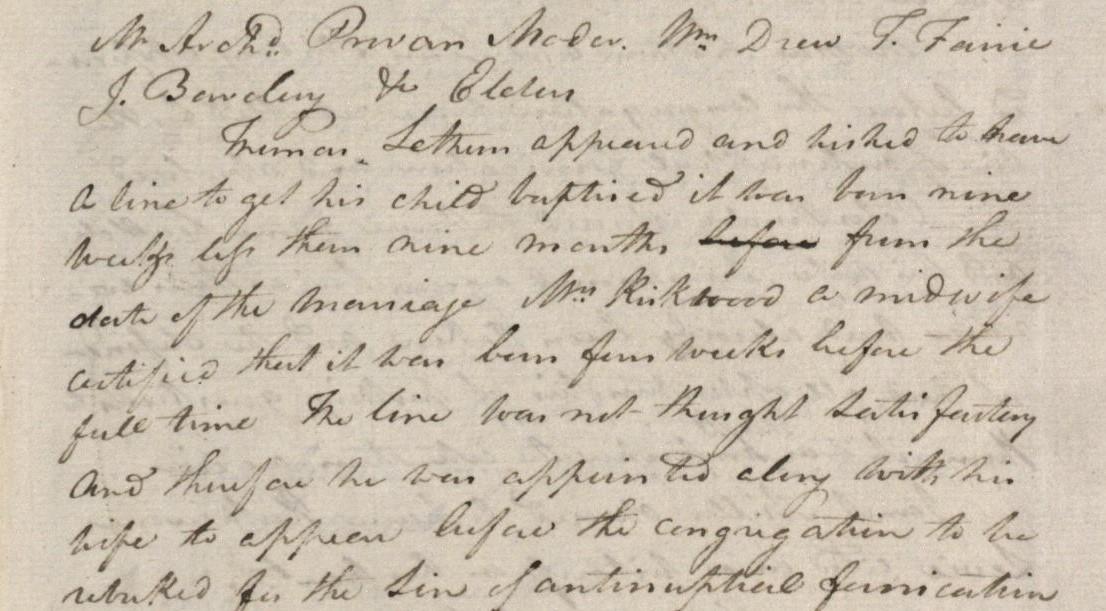 Mr Archd. Provan Moder. Wm Drew T. Fairie
J. Bowcluy & Elders
Thomas Lethem appeared and wished to have
a line to get his child baptised it was born nine
weeks less them nine months before from the
date of the marriage Mrs Kirkwood a midwife
certified that it was born four weeks before the
full time The line was not thought satisfactory
and therefore he was appointed along with his
wife to appear before the congregation to be
rebuked for the Sin of antinuptial fornication